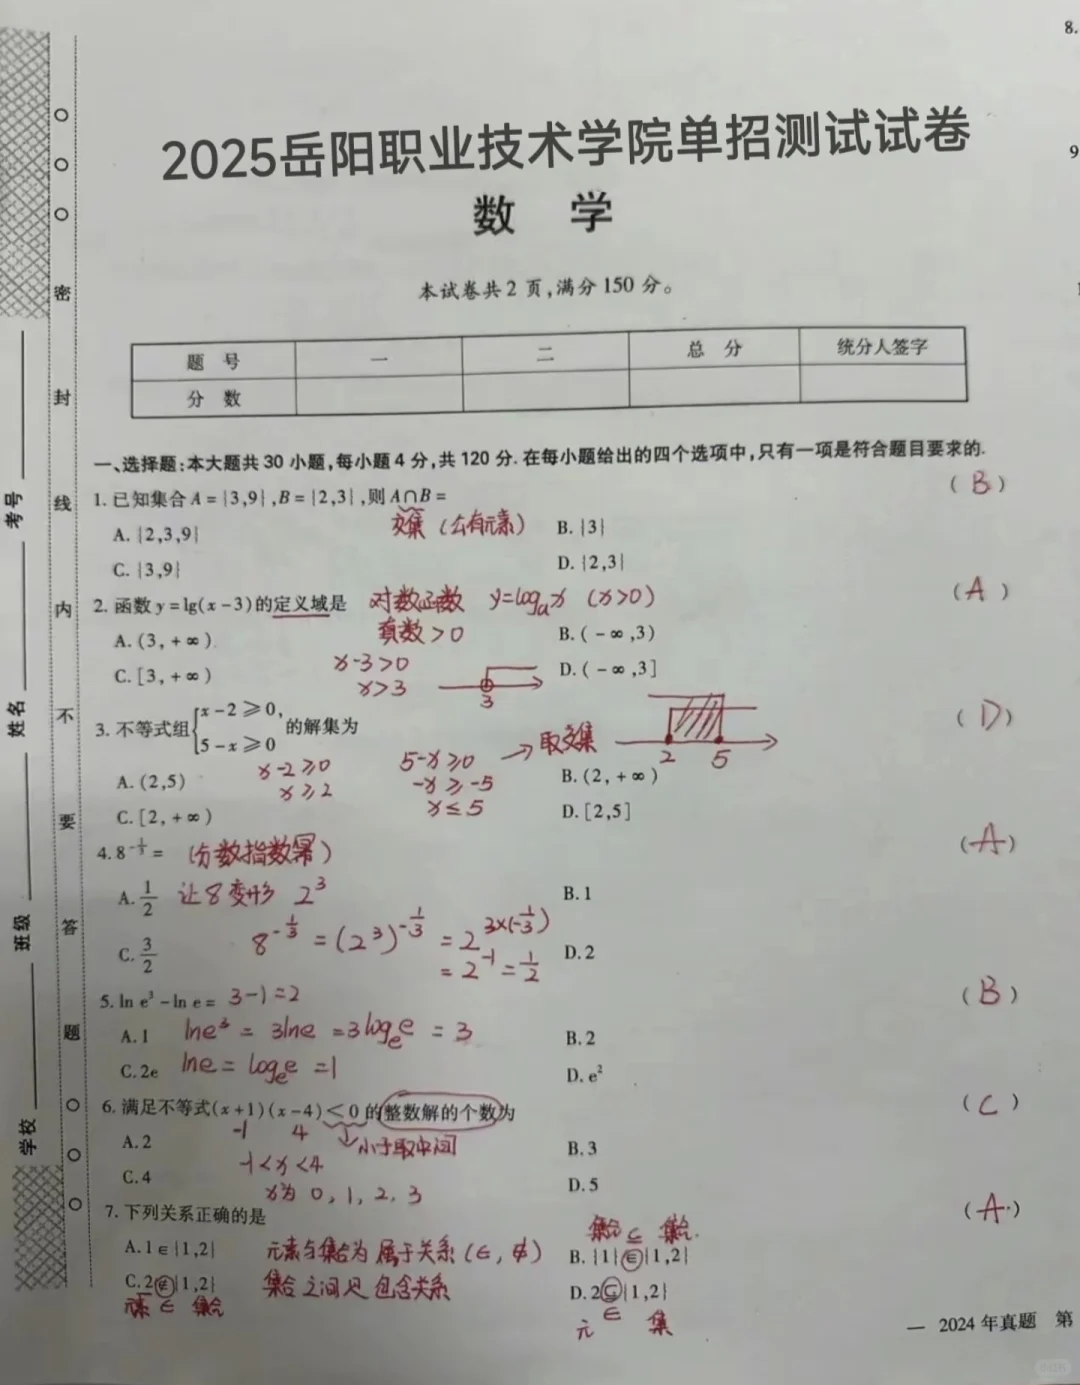 8.
9
2025岳阳职业技术学院单招测试试卷
数 学
本试卷共2页,满分150分。
题 号 一 二 总 分 统分人签字
分 数
一、选择题:本大题共30小题,每小题4分,共120分.在每小题给出的四个选项中,只有一项是符合题目要求的.
1.已知集合A={3,9},B={2,3},则A∩B= (B)
A.{2,3,9} 交集(公有元素) B.{3}
C.{3,9} D.{2,3}
2.函数y=lg(x-3)的定义域是 对数函数 y=logₐx (x>0) (A)
A.(3,+∞) 真数>0 B.(-∞,3)
C.[3,+∞) x-3>0 D.(-∞,3]
x>3 3
3.不等式组{x-2≥0, 5-x≥0 的解集为 (D)
x-2≥0 5-x≥0 → 取交集 2 5
A.(2,5) x≥2 -x≥-5 B.(2,+∞)
C.[2,+∞) x≤5 D.[2,5]
4.8^{-1/3}= (分数指数幂) (A)
A.1/2 让8变形 2³ B.1
8^{-1/3}=(2³)^{-1/3}=2^{3×(-1/3)}
C.3/2 =2^{-1}=1/2 D.2
5.ln e³-ln e= 3-1=2 (B)
A.1 lne³=3lne=3logₑe=3 B.2
C.2e lne=logₑe=1 D.e²
6.满足不等式(x+1)(x-4)<0的整数解的个数为 (C)
-1 4 小于取中间
A.2 -1<x<4 B.3
C.4 x为 0,1,2,3 D.5
7.下列关系正确的是 (A)
集合⊆集合
A.1∈{1,2} 元素与集合为属于关系(∈,∉) B.{1}∈{1,2}
C.2∉{1,2} 集合之间是包含关系 D.2⊆{1,2}
元素∈集合 ∈
元 集
— 2024年真题 第
密
封
线
内
不
要
答
题
考号
姓名
班级
学校